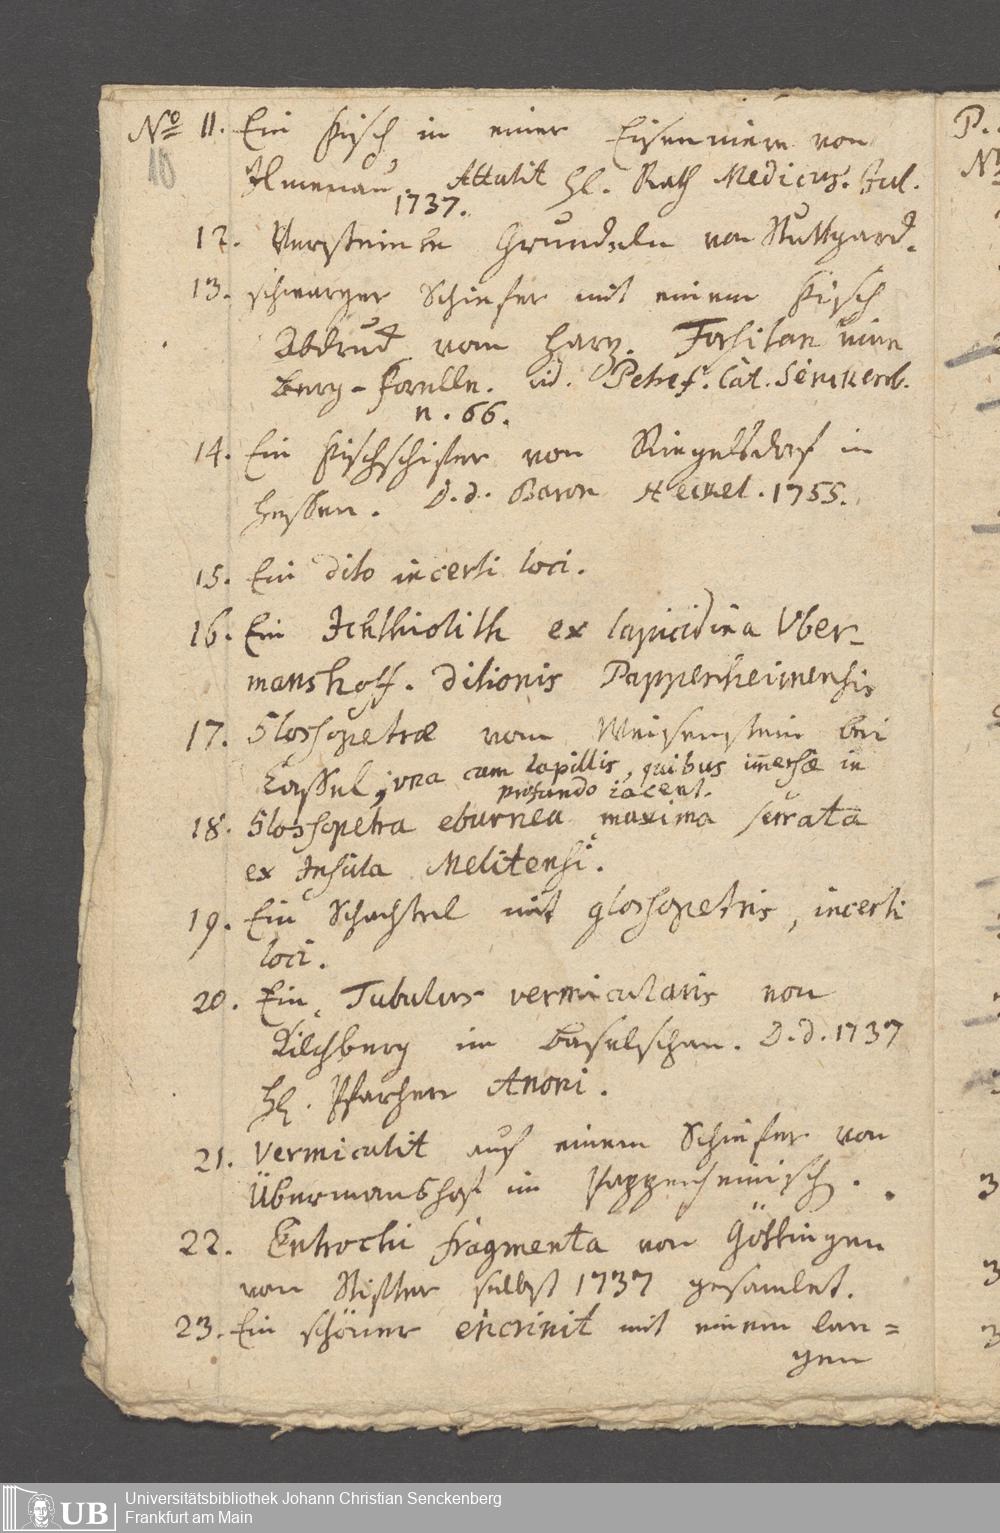 No 11. Ein Fisch in einer Eisenniere von
10
Ilmenau. Attulit H. Rath Medicus. Jul.
1737.
12. Versteinerte Grundeln von Stuttgard.
13. schwarzer Schiefer mit einem Fisch
Abdruck vom Harz. Forsitan eine
Berg-Forelle. vid. Petref. Cat. Senckenb.
n. 66.
14. Ein Fischschiefer von Riegelsdorf in
Hessen. D. d. Baron Heckel. 1755.
15. Ein dito incerti loci.
16. Ein Ichthiolith ex lapicidina Uber-
manshoff. ditionis Pappenheimensis
17. Glossopetrae vom Weisenstein bei
Cassel, una cum lapillis, quibus im̄ersae in
profundo iacent.
18. Glossopetra eburnea maxima serrata
ex Insula Melitensi.
19. Ein Schachtel mit glossopetris, incerti
loci.
20. Ein Tubulus vermicularis von
Kilchberg im Baselschen. D. d. 1737
H. Pfarherr Anoni.
21. Vermiculit auf einem Schiefer von
Übermanshof im Pappenheimisch.
22. Entrochi fragmenta von Göttingen
von Stifter selbst 1737 gesamlet.
23. Ein schöner encrinit mit einem lan=
gen
P.
N
3
3
3
UB
Universitätsbibliothek Johann Christian Senckenberg
Frankfurt am Main